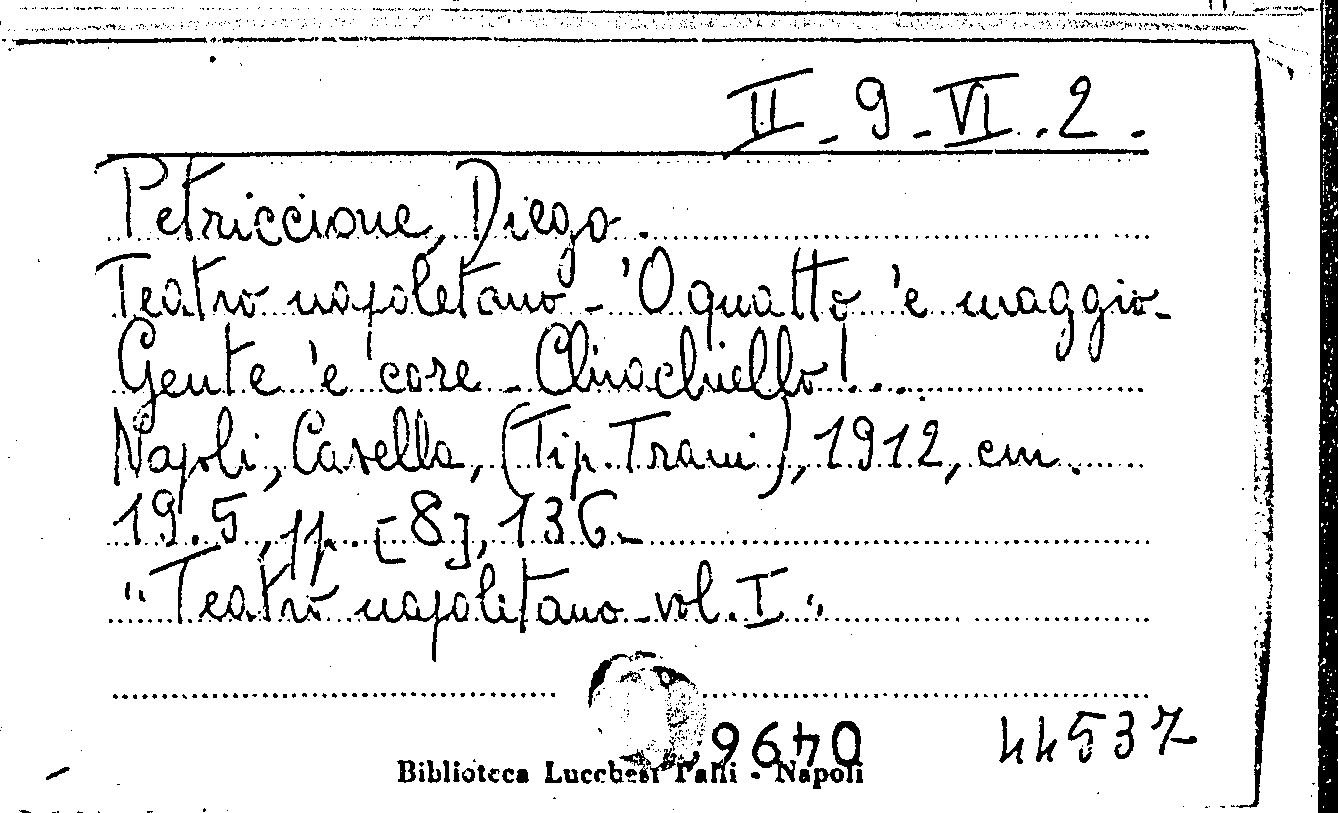 II - 9 - VI . 2 .
Petriccione, Diego .
Teatro napoletano - 'O quatto 'e maggio -
Gente 'e core - Chiachiello! ...
Napoli, Casella, (Tip. Trani), 1912, cm.
19.5, pp. [8], 136 -
"Teatro napoletano - vol. I"
44537
Biblioteca Lucchesi Palli - Napoli